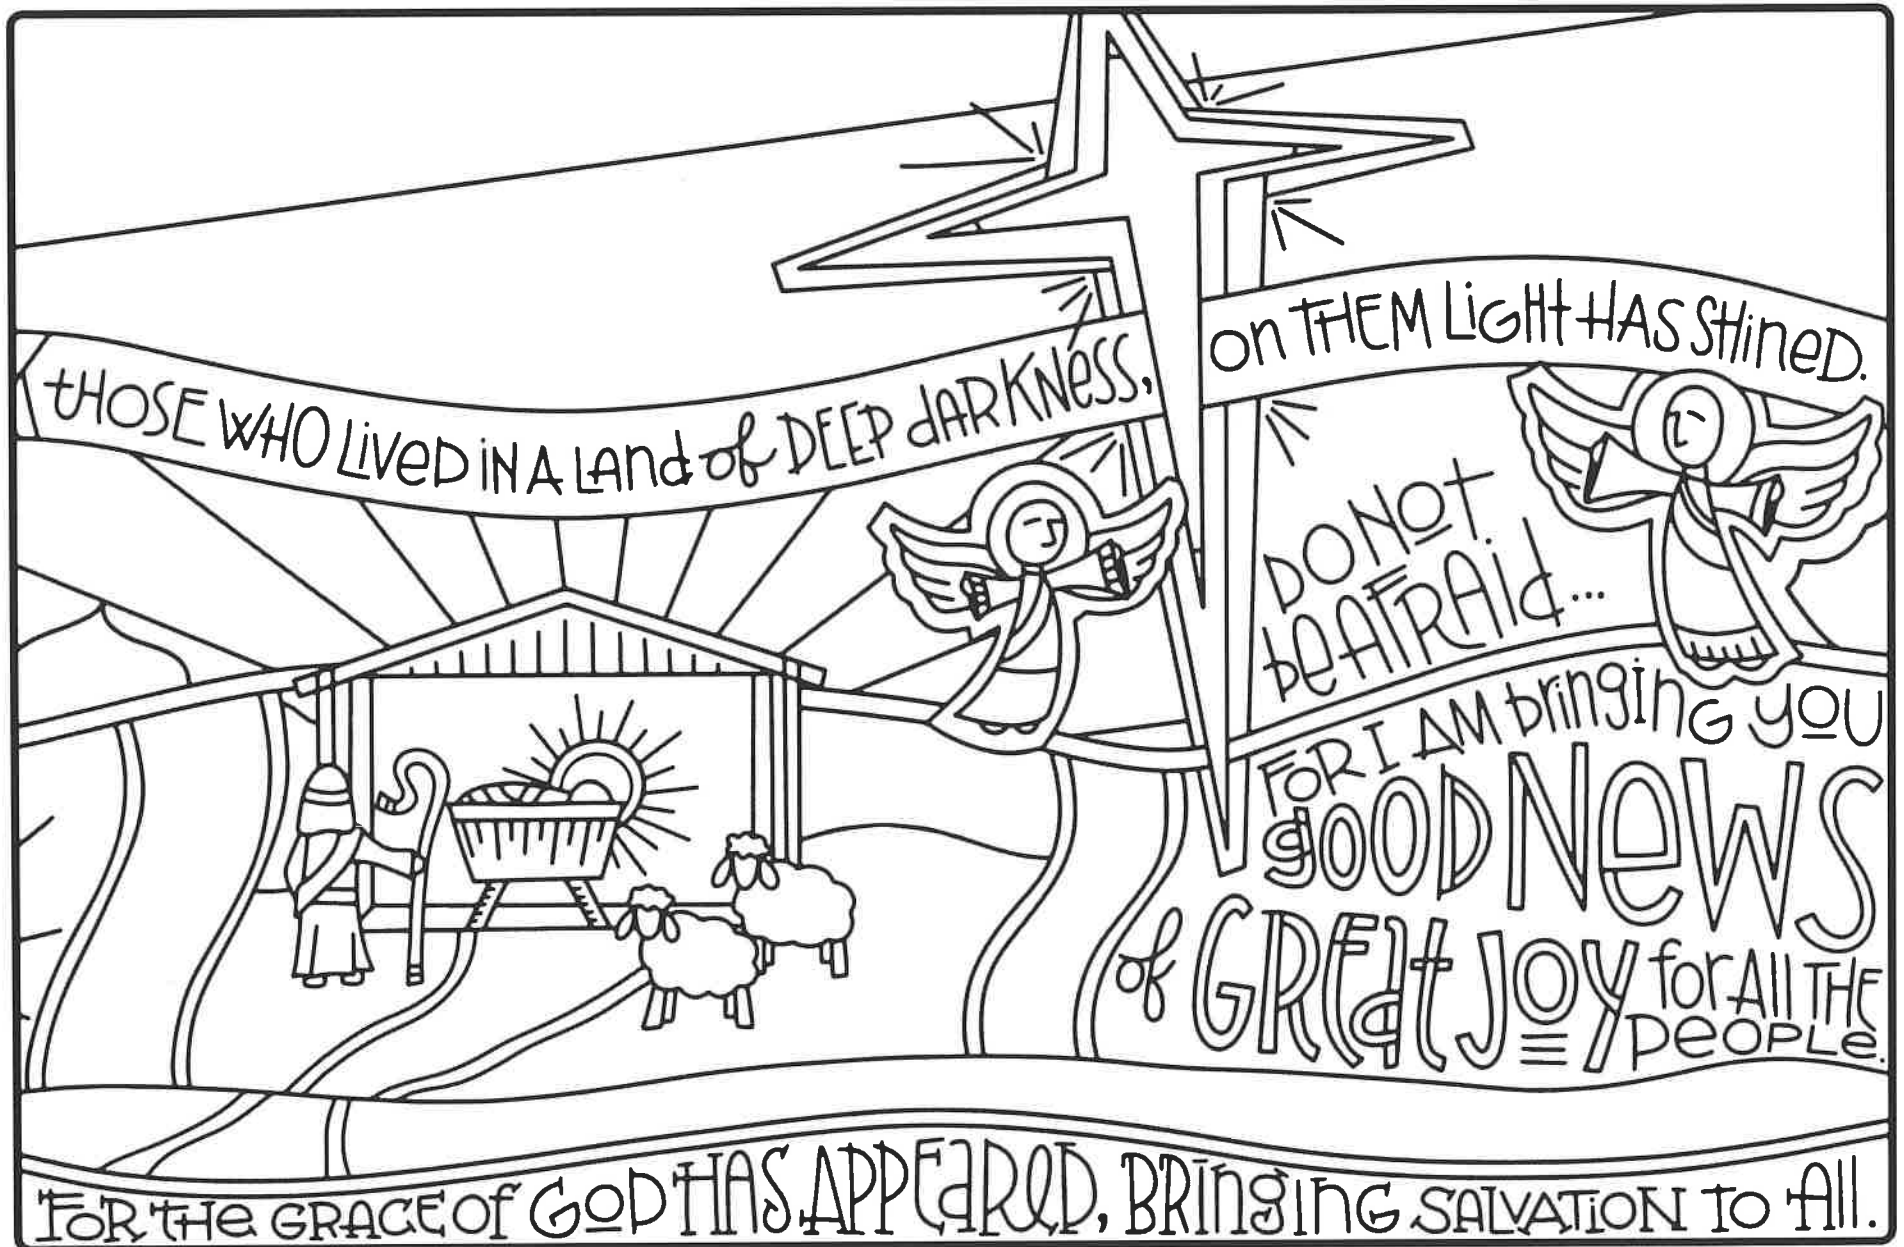 those who lived in a land of deep darkness,
on them light has shined.
Do not
be afraid...
For I am bringing you
good news
of great joy for all the
people.
For the grace of God has appeared, bringing salvation to all.